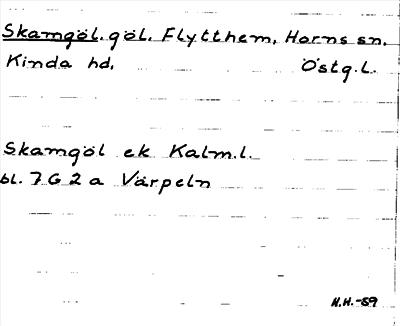 Skamgöl. göl. Flytthem. Horns sn.
Kinda hd. Östg.L.
Skamgöl ek Kalm.l.
bl. 7G2a Värpeln
N.H.-59